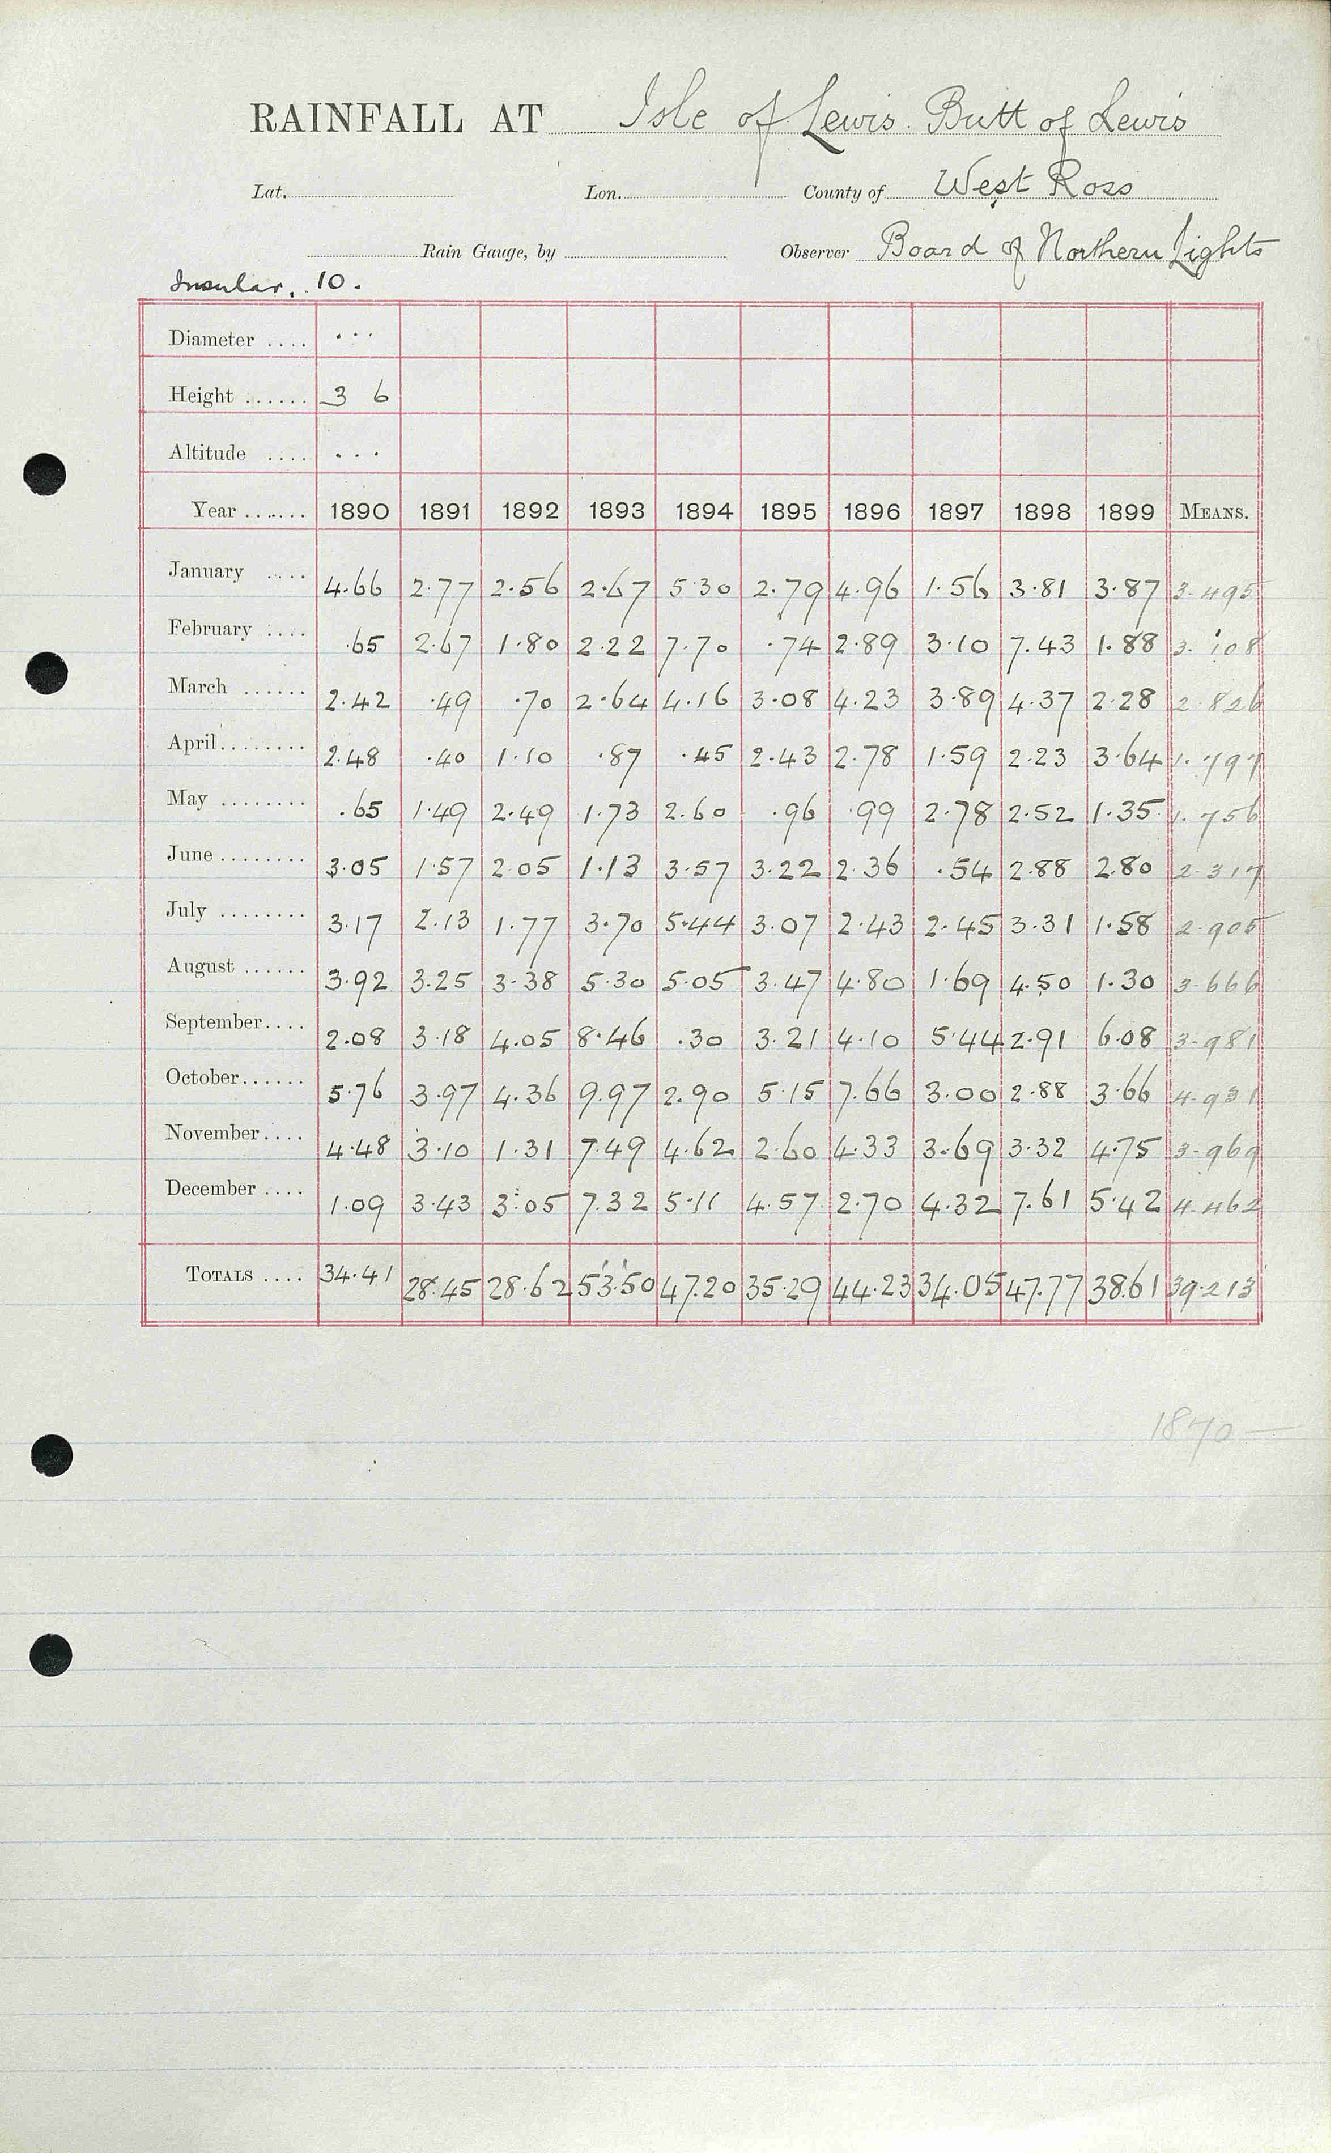 RAINFALL AT Isle of Lewis. Butt of Lewis
Lat. Lon. County of West Ross
Rain Gauge, by Observer Board of Northern Lights
Insular. 10.
Diameter .... ...
Height ...... 3 6
Altitude .... ...
Year ...... 1890 1891 1892 1893 1894 1895 1896 1897 1898 1899 MEANS.
January .... 4.66 2.77 2.56 2.67 5.30 2.79 4.96 1.56 3.81 3.87 3.495
February .... .65 2.67 1.80 2.22 7.70 .74 2.89 3.10 7.43 1.88 3.108
March ...... 2.42 .49 .70 2.64 4.16 3.08 4.23 3.89 4.37 2.28 2.826
April ........ 2.48 .40 1.10 .87 .45 2.43 2.78 1.59 2.23 3.64 1.797
May ........ .65 1.49 2.49 1.73 2.60 .96 .99 2.78 2.52 1.35 1.756
June ........ 3.05 1.57 2.05 1.13 3.57 3.22 2.36 .54 2.88 2.80 2.317
July ........ 3.17 2.13 1.77 3.70 5.44 3.07 2.43 2.45 3.31 1.58 2.905
August ...... 3.92 3.25 3.38 5.30 5.05 3.47 4.80 1.69 4.50 1.30 3.666
September.... 2.08 3.18 4.05 8.46 .30 3.21 4.10 5.44 2.91 6.08 3.981
October...... 5.76 3.97 4.36 9.97 2.90 5.15 7.66 3.00 2.88 3.66 4.931
November.... 4.48 3.10 1.31 7.49 4.62 2.60 4.33 3.69 3.32 4.75 3.969
December .... 1.09 3.43 3.05 7.32 5.11 4.57 2.70 4.32 7.61 5.42 4.462
TOTALS .... 34.41 28.45 28.62 53.50 47.20 35.29 44.23 34.05 47.77 38.61 39.213
1870 —